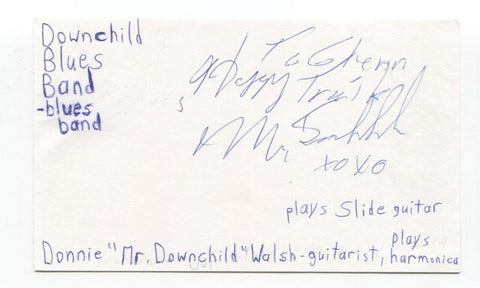 Downchild
Blues
Band
-blues
band
To Glenn
Happy Trails
Mr
xoxo
plays Slide guitar
plays
Donnie "Mr. Downchild" Walsh-guitarist, harmonica